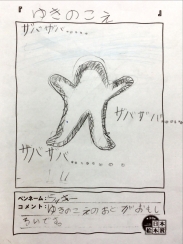 ゆきのこえ
ザバザバ……
ザバザバ……
サバサバ
………
ペンネーム：
コメント：ゆきのこえのおとがおもし
ろいです